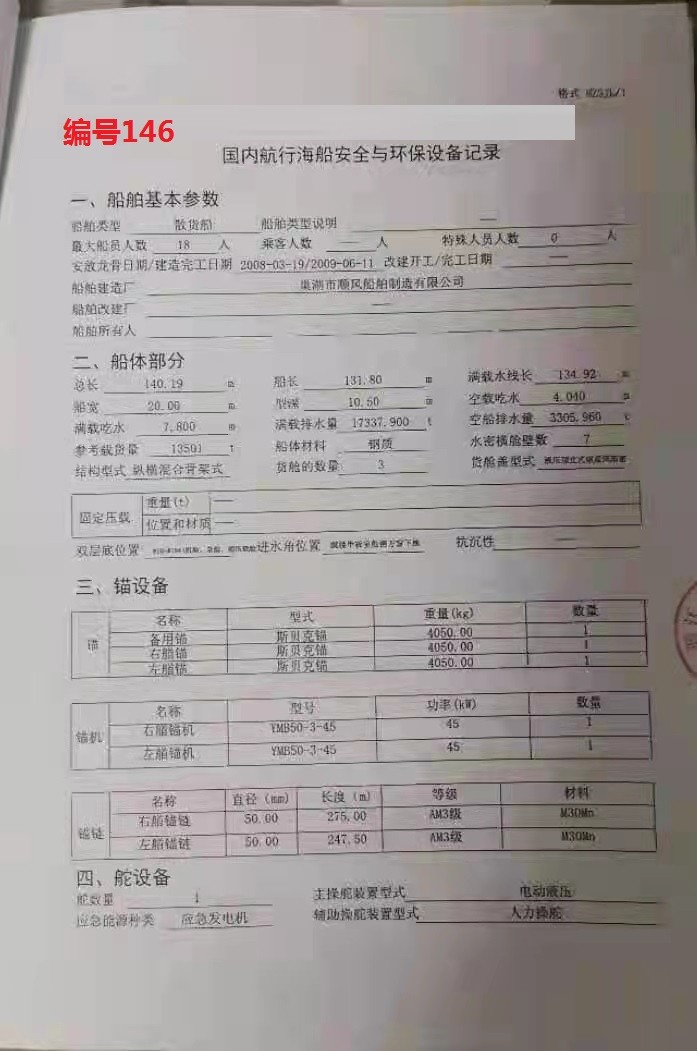 格式
编号146
国内航行海船安全与环保设备记录
一、船舶基本参数
船舶类型 散货船 船舶类型说明 —
最大船员人数 18 人 乘客人数 — 人 特殊人员人数 0 人
安放龙骨日期/建造完工日期 2008-03-19/2009-06-11 改建开工/完工日期 —
船舶建造厂 巢湖市顺风船舶制造有限公司
船舶改建厂 —
船舶所有人
二、船体部分
总长 140.19 m 船长 131.80 m 满载水线长 134.92 m
船宽 20.00 m 型深 10.50 m 空载吃水 4.040 m
满载吃水 7.800 m 满载排水量 17337.900 t 空船排水量 3305.960 t
参考载货量 13501 t 船体材料 钢质 水密横舱壁数 7
结构型式 纵横混合骨架式 货舱的数量 3 货舱盖型式
固定压载 重量(t) —
位置和材质 —
双层底位置 进水角位置 抗沉性 —
三、锚设备
锚 名称 型式 重量(kg) 数量
备用锚 斯贝克锚 4050.00 1
右艏锚 斯贝克锚 4050.00 1
左艏锚 斯贝克锚 4050.00 1
锚机 名称 型号 功率(kW) 数量
右艏锚机 YMB50-3-45 45 1
左艏锚机 YMB50-3-45 45 1
锚链 名称 直径 (mm) 长度 (m) 等级 材料
右艏锚链 50.00 275.00 AM3级 M30Mn
左艏锚链 50.00 247.50 AM3级 M30Mn
四、舵设备
舵数量 1 主操舵装置型式 电动液压
应急能源种类 应急发电机 辅助操舵装置型式 人力操舵